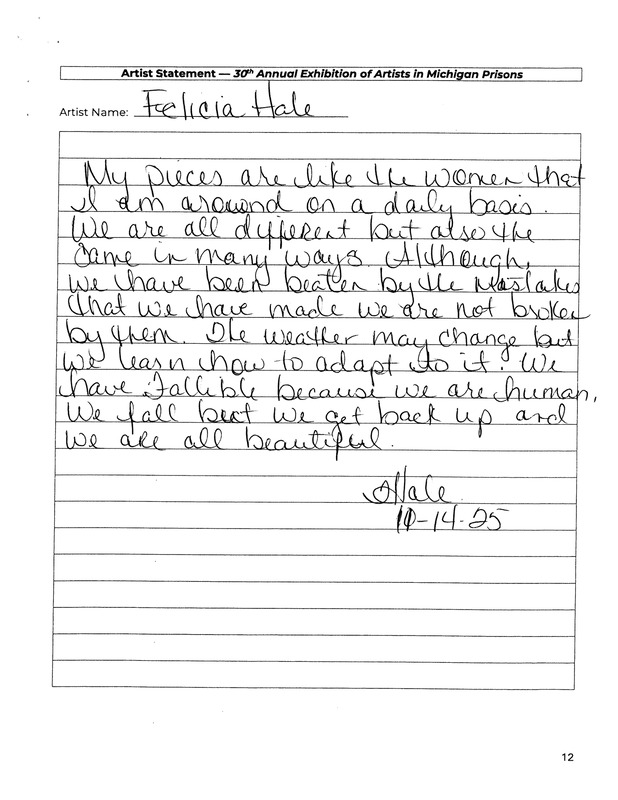 Artist Statement — 30th Annual Exhibition of Artists in Michigan Prisons
Artist Name: Felicia Hale
My pieces are like the women that
I am around on a daily basis.
We are all different but also the
same in many ways. Although,
we have been beaten by the mistakes
that we have made we are not broken
by them. The weather may change but
we learn how to adapt to it. We
have fallible because we are human,
We fall but we get back up and
we are all beautiful.
Hale
10-14-25
12